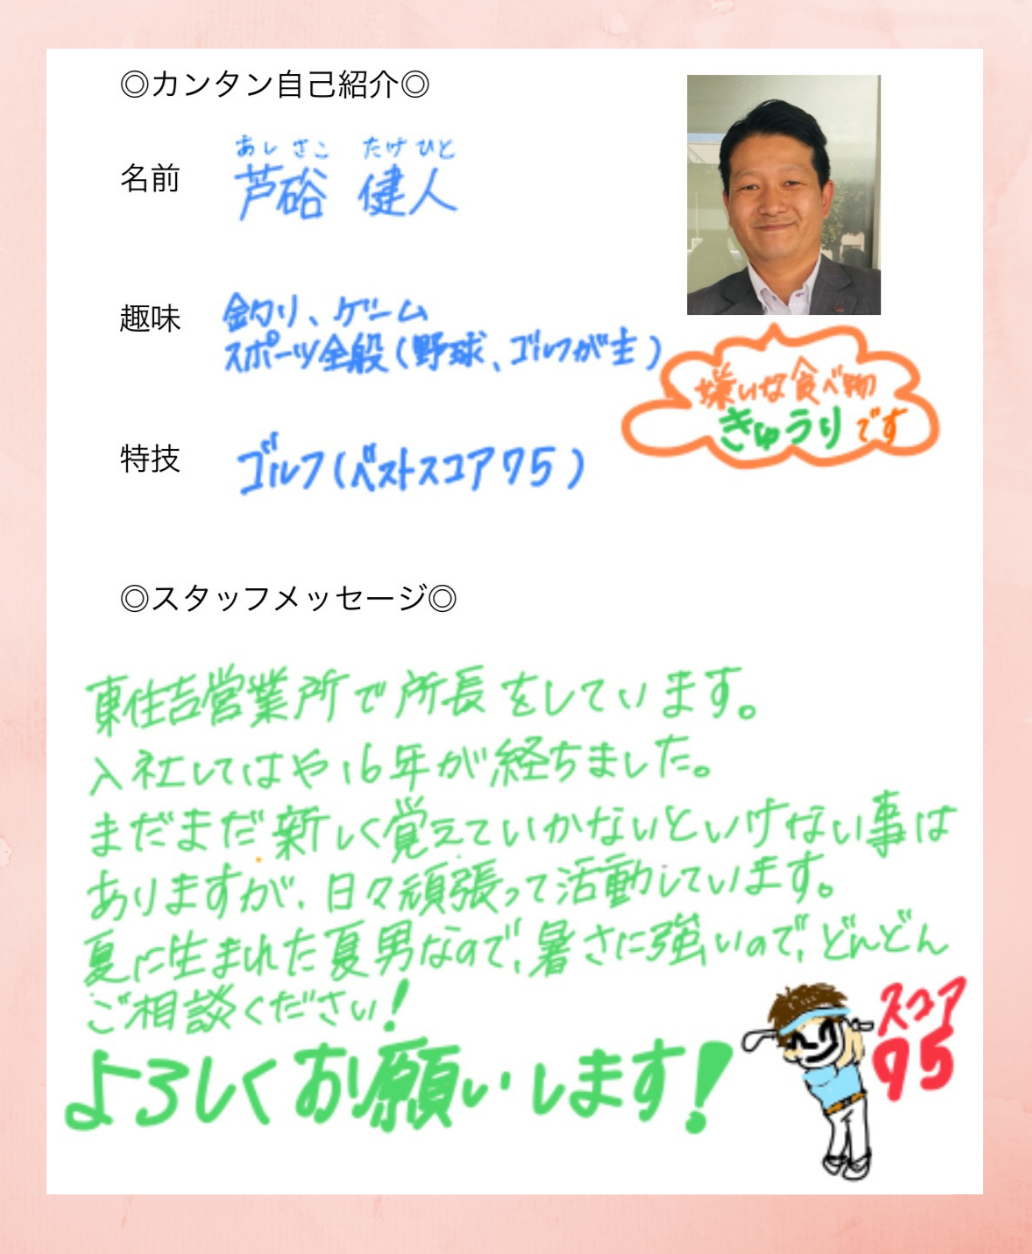 ◎カンタン自己紹介◎
あしざこ たけひと
名前 芦硲 健人
趣味 釣り、ゲーム
スポーツ全般(野球、ゴルフが主)
嫌いな食べ物
きゅうりです
特技 ゴルフ(ベストスコア75)
◎スタッフメッセージ◎
東住吉営業所で所長をしています。
入社してはや16年が経ちました。
まだまだ新しく覚えていかないといけない事は
ありますが、日々頑張って活動しています。
夏に生まれた夏男なので、暑さに強いので、どんどん
ご相談ください!
よろしくお願いします!
スコア
75